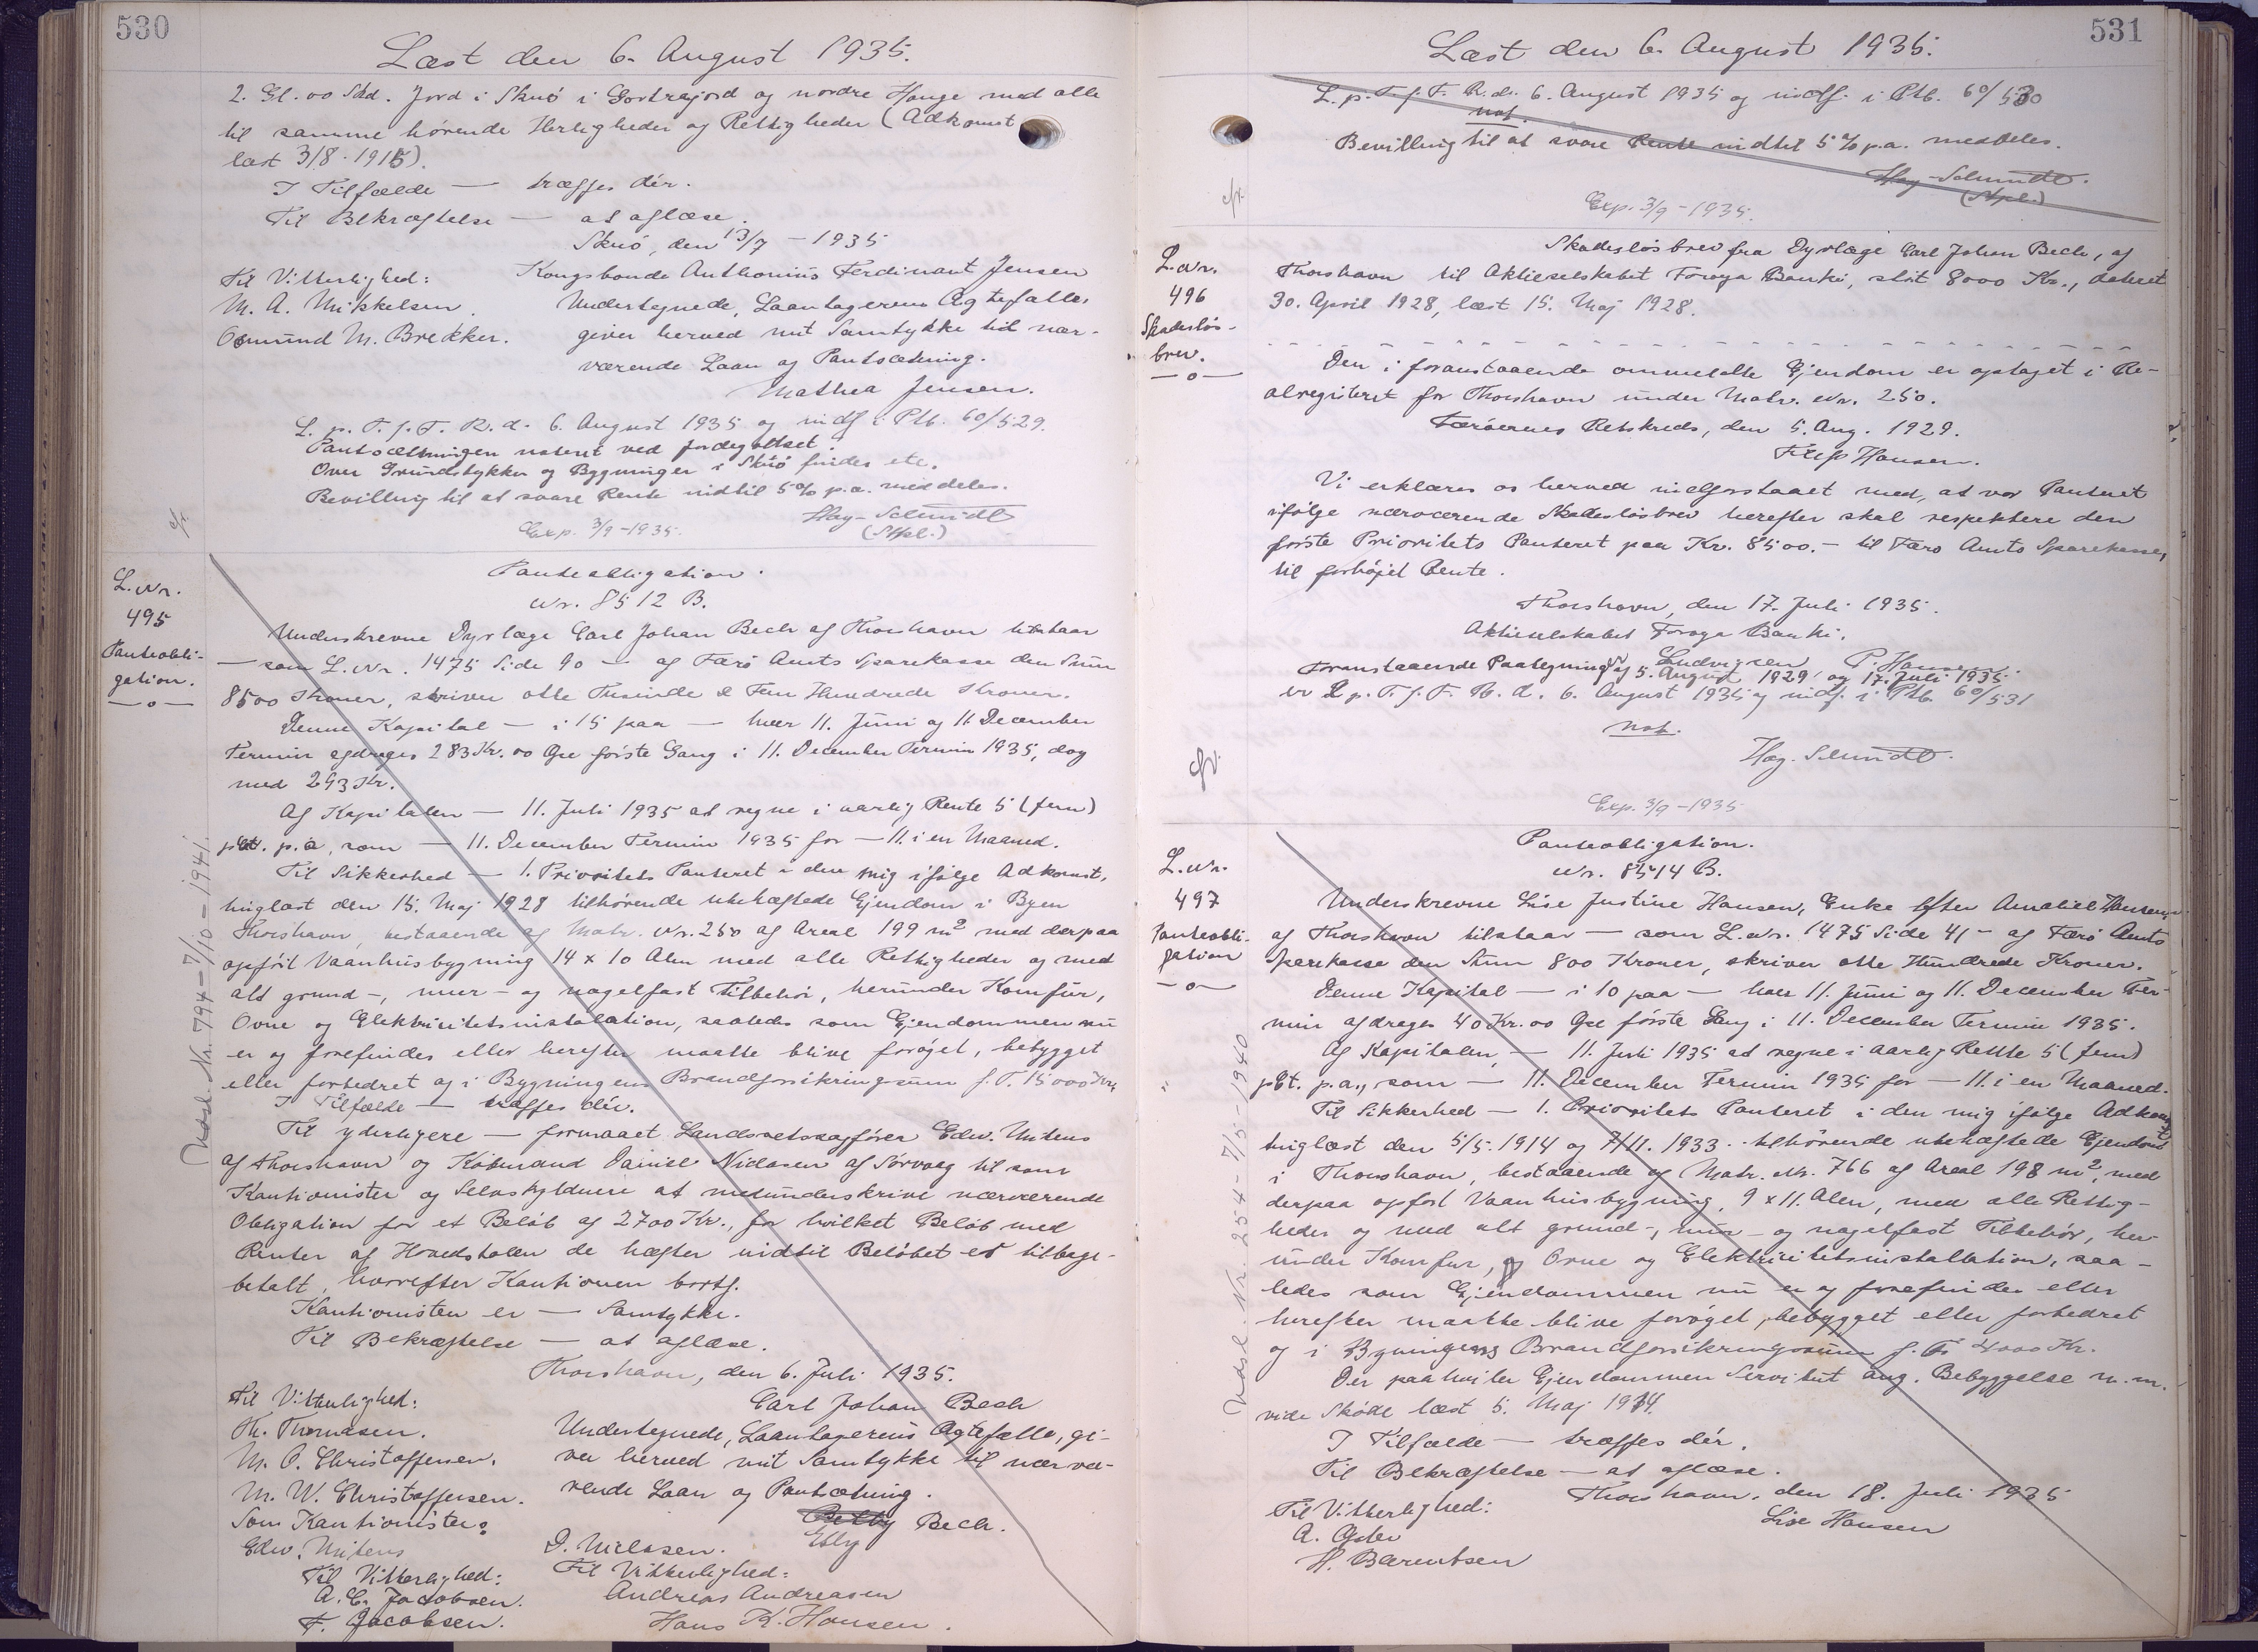 530
Læst den 6. August 1935.
2. Gl. 00 Skd. Jord i Skuö i Gortrajord og nordre Hauge med alle
til samme hörende Herligheder og Rettigheder (Adkomst
læst 3/8. 1915).
I Tilfælde — træffes dér.
Til Bekræftelse — at aflæse.
Skuö, den 13/7 - 1935
Til Vitterlighed:
Kongsbonde Anthonius Ferdinant Jensen
M. A. Mikkelsen.
Undertegnede, Laantagerens Ægtefælle,
Osmund M. Brekker.
giver herved mit Samtykke til nær-
værende Laan og Pantsætning.
Mathea Jensen.
L. p. T. f. F. R. d. 6. August 1935 og indf. i Ptb. 60/529.
Pantsætningen noteret ved Jordegodset.
Over Grundstykker og Bygninger i Skuö findes etc.
Bevilling til at svare Rente indtil 5% p.a. meddeles.
Hay-Schmidt
(Stpl.)
Exp. 3/9-1935.
L. Nr.
495
Panteobli-
gation.
—o—
Panteobligation.
Nr. 8512 B.
Underskrevne Dyrlæge Carl Johan Bech af Thorshavn tilstaar
— som L. Nr. 1475 Side 90 — af Færö Amts Sparekasse den Sum
8500 Kroner, skriver otte Tusinde & Fem Hundrede Kroner.
Denne Kapital — i 15 paa — hver 11. Juni og 11 December
Termin afdrages 283 Kr. 00 Öre förste Gang i 11. December Termin 1935, dog
med 293 Kr.
Af Kapitalen — 11. Juli 1935 at regne i aarlig Rente 5 (fem)
pCt. p.a, som — 11. December Termin 1935 for — 11. i en Maaned.
Til Sikkerhed — 1. Prioritets Panteret i den mig ifölge Adkomst,
tinglæst den 15. Maj 1928 tilhörende ubehæftede Ejendom i Byen
Thorshavn, bestaaende af Matr. Nr. 250 af Areal 199 m² med derpaa
opfört Vaanhusbygning 14 x 10 Alen med alle Rettigheder og med
alt grund-, mur- og nagelfast Tilbehör, herunder Komfur,
Ovne og Elektricitetsinstalation, saaledes som Ejendommen nu
er og forefindes eller herefter maatte blive foröget, bebygget
eller forbedret og i Bygningens Brandforsikringssum f. T. 15000 Kr.
I Tilfælde — træffes dér.
Til yderligere — formaaet Landsretssagförer Edw. Mitens
af Thorshavn og Köbmand Daniel Niclasen af Sörvaag til som
Kautionister og Selvskyldnere at medunderskrive nærværende
Obligation for et Belöb af 2700 Kr., for hvilket Belöb med
Renter af Hovedstolen de hæfter indtil Belöbet er tilbage-
betalt, hvorefter Kautionen bortf.
Kautionisten er — Samtykke.
Til Bekræftelse — at aflæse.
Thorshavn, den 6. Juli 1935.
Til Vitterlighed:
Carl Johan Bech
Th. Thomasen.
Undertegnede, Laantagerens Ægtefælle, gi-
M. O. Christoffersen.
ver herved mit Samtykke til nærvæ-
M. W. Christoffersen.
rende Laan og Pantsætning.
Som Kautionister:
Bech.
Edw. Mitens
D. Niclasen.
Elly
Til Vitterlighed:
Til Vitterlighed:
A. C. Jacobsen.
Andreas Andreasen
F. Jacobsen.
Hans K. Hansen.
Udsl. Nr. 794 - 7/10 - 1941.
531
Læst den 6. August 1935.
L. p. T. f. F. R. d. 6. August 1935 og indf. i Ptb. 60/530
not.
Bevilling til at svare Rente indtil 5% p.a. meddeles.
Hay-Schmidt.
(Stpl.)
Exp. 3/9-1935.
L. Nr.
496
Skadeslös-
brev.
—o—
Skadeslösbrev fra Dyrlæge Carl Johan Bech, af
Thorshavn til Aktieselskabet Foroya Banki, stort 8000 Kr., dateret
30. April 1928, læst 15. Maj 1928.
Den i foranstaaende ommeldte Ejendom er optaget i Re-
alregisteret for Thorshavn under Matr. Nr. 250.
Færöernes Retskreds, den 5. Aug. 1929.
Filip Hansen.
Vi erklærer os herved indforstaaet med, at vor Panteret
ifölge nærværende Skadeslösbrev herefter skal respektere den
förste Prioritets Panteret paa Kr. 8500.- til Færo Amts Sparekasse,
til forhöjet Rente.
Thorshavn, den 17. Juli 1935.
Aktieselskabet Foroya Banki.
Ludvigsen P. Hansen.
Foranstaaende Paategning af 5. August 1929 og 17. Juli 1935
er L. p. T. f. F. R. d. 6. August 1935 og indf. i Ptb. 60/531
not.
Hay-Schmidt.
Exp. 3/9-1935
L. Nr.
497
Panteobli-
gation
—o—
Panteobligation.
Nr. 8514 B.
Underskrevne Lise Justine Hansen, Enke efter Amaliel Hansen,
af Thorshavn tilstaar — som L. Nr. 1475 Side 41 - af Færö Amts
Sparekasse den Sum 800 Kroner, skriver otte Hundrede Kroner.
Denne Kapital — i 10 paa — hver 11. Juni og 11. December Ter-
min afdrages 40 Kr. 00 Öre förste Gang i 11. December Termin 1935.
Af Kapitalen, — 11. Juli 1935 at regne i aarlig Rente 5 (fem)
pCt. p.a., som — 11. December Termin 1935 for — 11. i en Maaned.
Til Sikkerhed — 1. Prioritets Panteret i den mig ifölge Adkomst
tinglæst den 5/5. 1914 og 7/11. 1933 tilhörende ubehæftede Ejendom
i Thorshavn, bestaaende af Matr. Nr. 766 af Areal 198 m², med
derpaa opfört Vaanhusbygning, 9 x 11. Alen, med alle Rettig-
heder og med alt grund-, mur- og nagelfast Tilbehör, her-
under Komfur, Ovne og Elektricitetsinstallation, saa-
ledes som Ejendommen nu er og forefindes eller
herefter maatte blive foröget, bebygget eller forbedret
og i Bygningens Brandforsikringssum f. T. 4000 Kr.
Der paahviler Ejendommen Servitut ang. Bebyggelse m.m.
vide Sköde læst 5. Maj 1914.
I Tilfælde — træffes dér.
Til Bekræftelse — at aflæse.
Thorshavn, den 18. Juli 1935
Til Vitterlighed:
Lise Hansen
H. Barentsen
Udsl. Nr. 254 - 7/5 - 1940